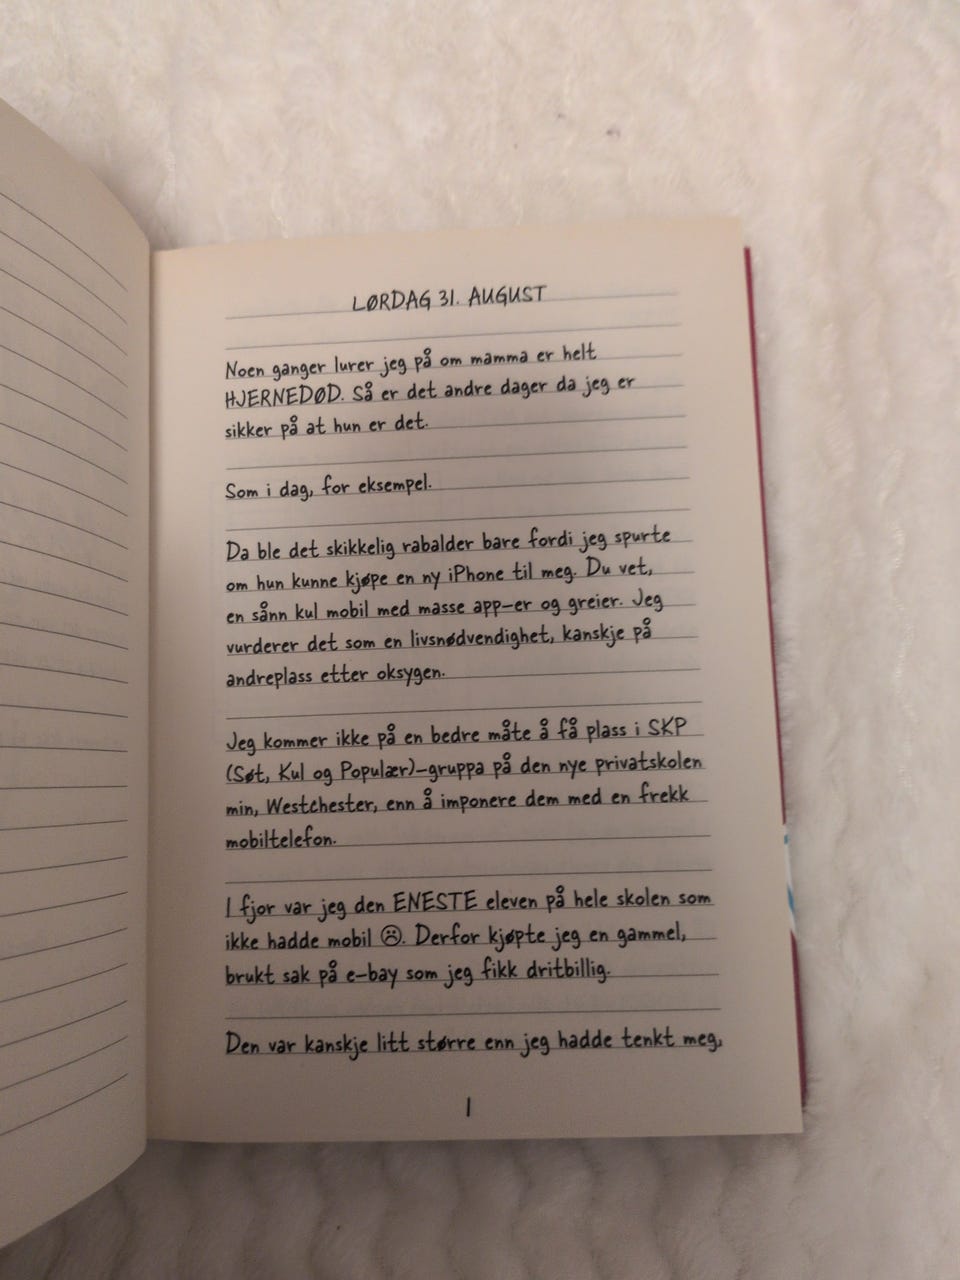 LØRDAG 31. AUGUST
Noen ganger lurer jeg på om mamma er helt
HJERNEDØD. Så er det andre dager da jeg er
sikker på at hun er det.
Som i dag, for eksempel.
Da ble det skikkelig rabalder bare fordi jeg spurte
om hun kunne kjøpe en ny iPhone til meg. Du vet,
en sånn kul mobil med masse app-er og greier. Jeg
vurderer det som en livsnødvendighet, kanskje på
andreplass etter oksygen.
Jeg kommer ikke på en bedre måte å få plass i SKP
(Søt, Kul og Populær)-gruppa på den nye privatskolen
min, Westchester, enn å imponere dem med en frekk
mobiltelefon.
I fjor var jeg den ENESTE eleven på hele skolen som
ikke hadde mobil ☹. Derfor kjøpte jeg en gammel,
brukt sak på e-bay som jeg fikk dritbillig.
Den var kanskje litt større enn jeg hadde tenkt meg,
1